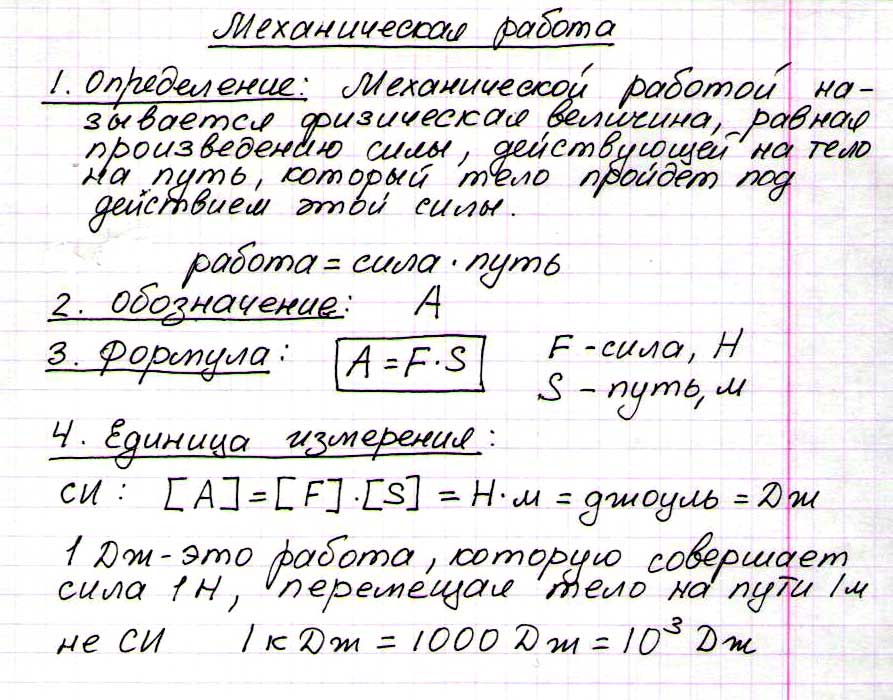 Механическая работа
1. Определение: Механической работой на-
зывается физическая величина, равная
произведению силы, действующей на тело
на путь, который тело пройдет под
действием этой силы.
работа = сила · путь
2. Обозначение: A
3. Формула: A = F · S F - сила, Н
S - путь, м
4. Единица измерения:
СИ: [A] = [F] · [S] = Н · м = джоуль = Дж
1 Дж - это работа, которую совершает
сила 1 Н, перемещая тело на пути 1 м
не СИ 1 кДж = 1000 Дж = 10³ Дж